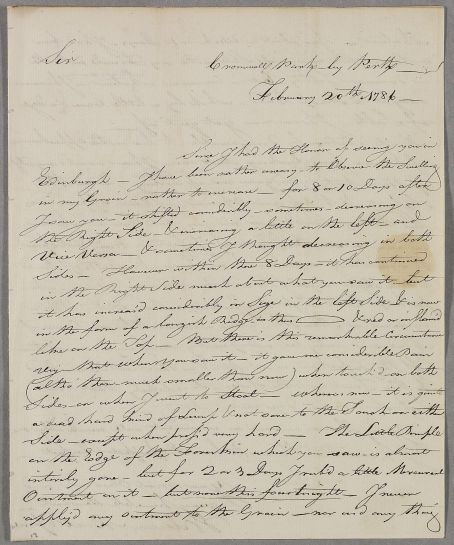 Sir
Cromwell Park by Perth
February 20th 1786 —
Since I had the Honor of seeing you in
Edinburgh — I have been rather uneasy to Observe the Swelling
in my Groin — rather to increase — for 8 or 10 Days after
I saw you — it shifted considerably — sometimes — decreasing on
the Right Side & increasing a little on the left — and
Vice Versa — & sometimes I thought decreasing in both
Sides — However within these 8 Days — it has continued
in the Right Side much about what you saw it — but
it has increased considerably in Size in the left Side & is now
in the form of a longish Ridge as this & red or inflamed
like on the Top — But there is this remarkable Circumstance
viz that when you saw it — it gave me considerable Pain
(altho' then much smaller than now) when touch'd on both
Sides — or when I went to Stool — whereas now — it is quite
a dead hard kind of Lump & not sore to the Touch on either
Side — except when press'd very hard — The Little Pimple
on the Edge of the Foreskin which you saw is almost
intirely gone — but for 2 or 3 Days I rubd a little Mercurial
Ointment on it — but now this fourtnight — I never
apply'd any ointment to the Groin — nor did any thing